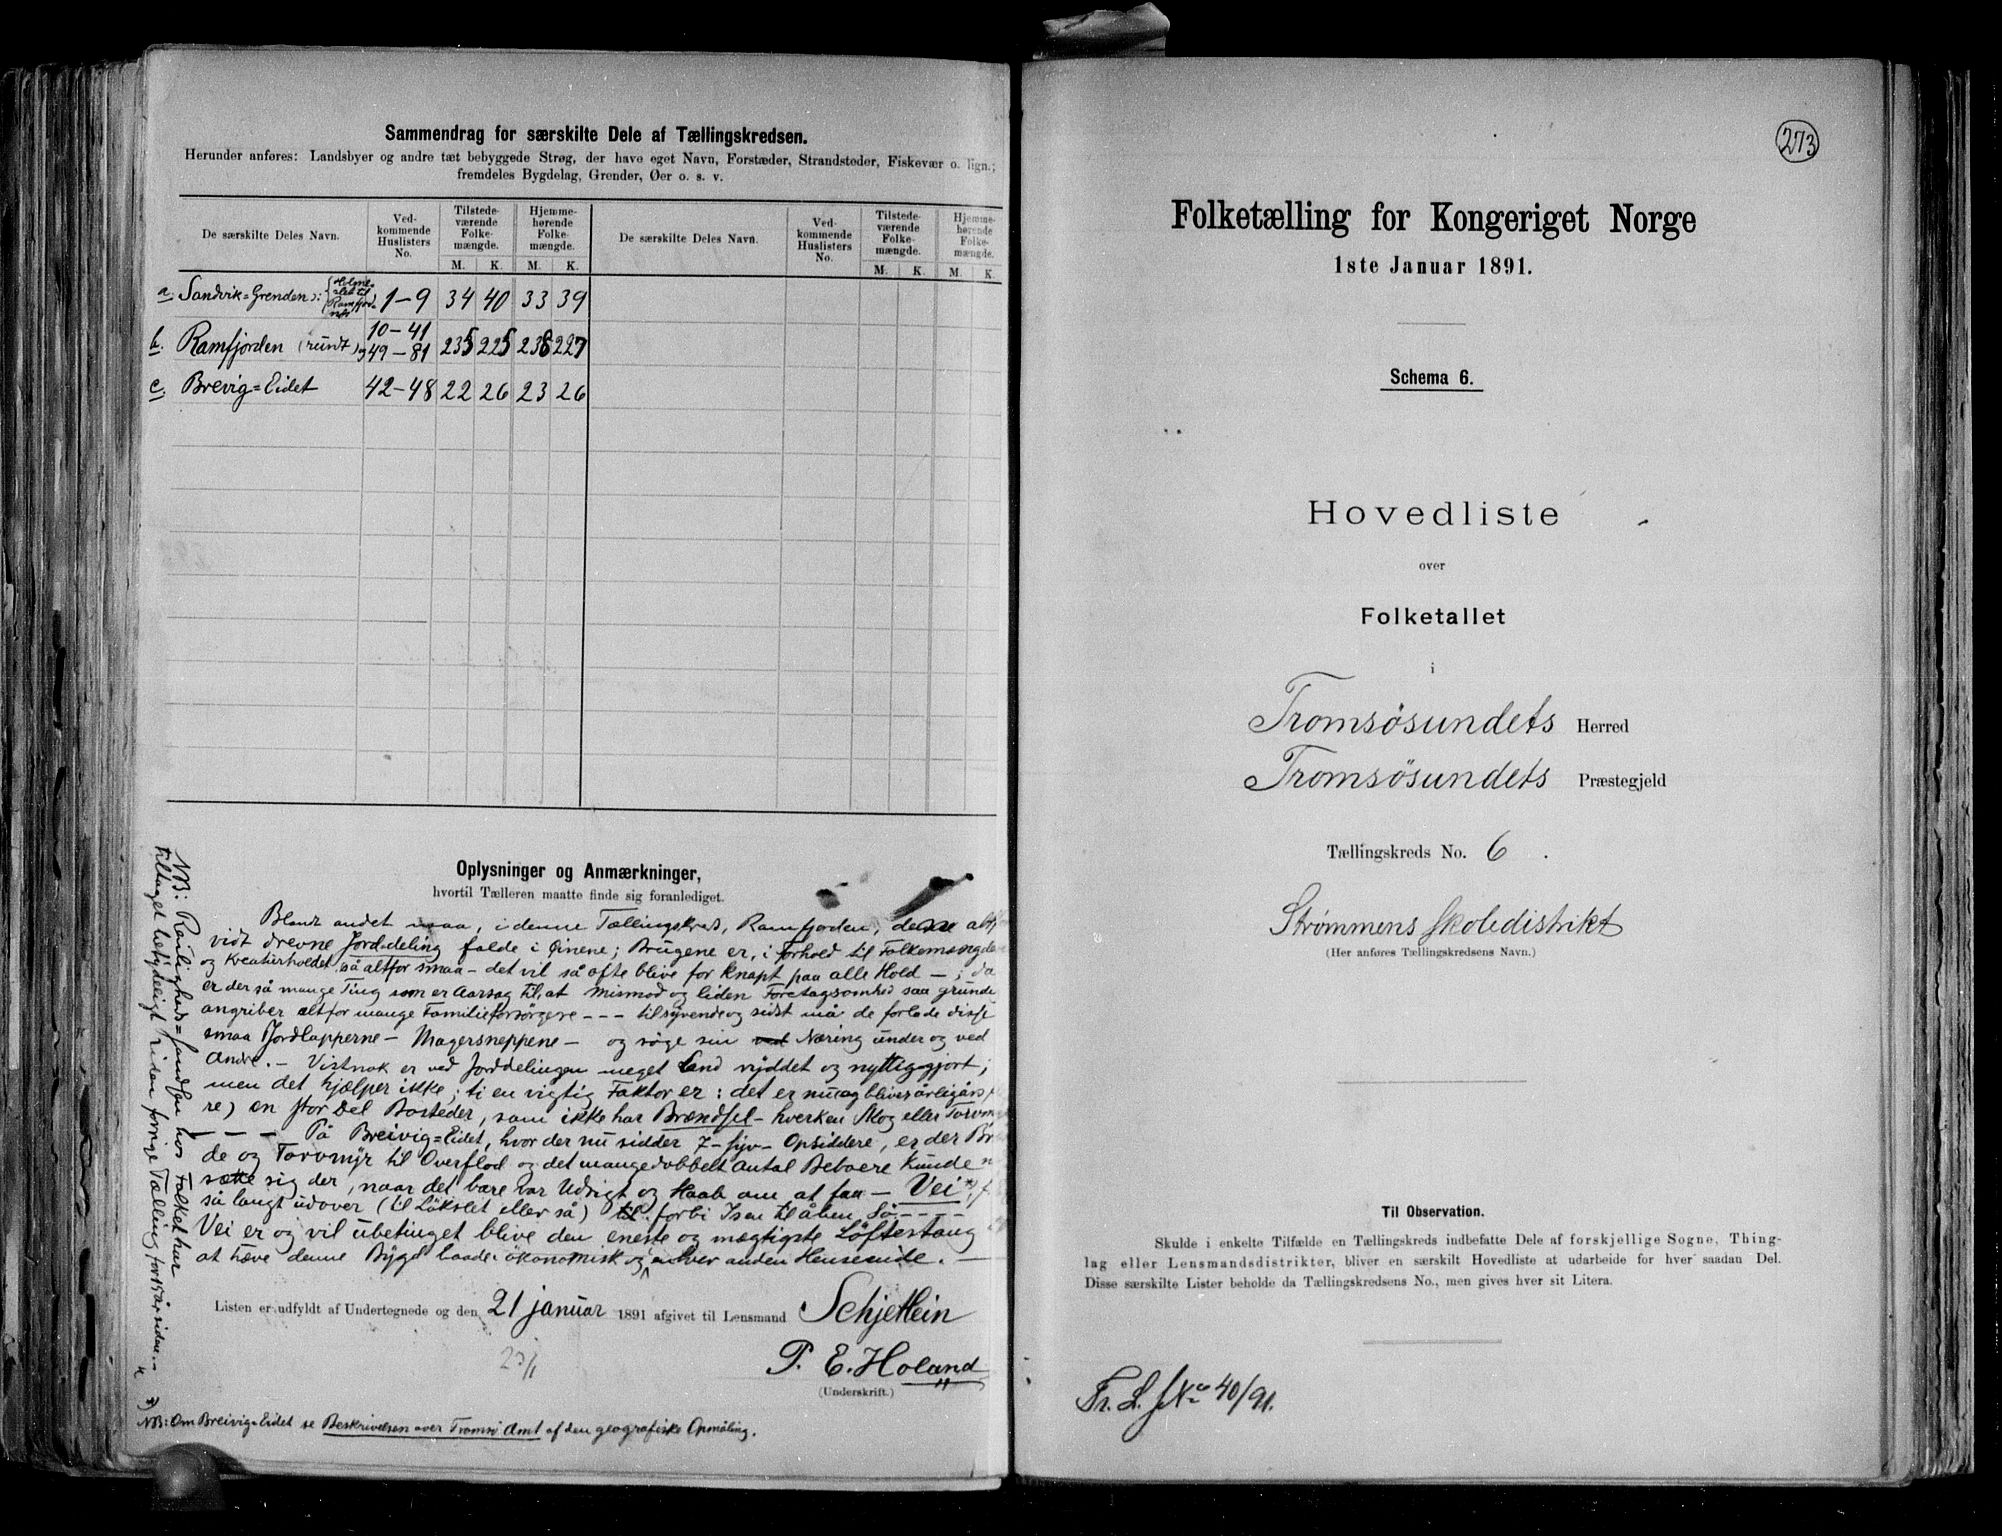 Sammendrag for særskilte Dele af Tællingskredsen.
Herunder anføres: Landsbyer og andre tæt bebyggede Strøg, der have eget Navn, Forstæder, Strandsteder, Fiskevær o. lign.;
fremdeles Bygdelag, Grender, Øer o. s. v.
De særskilte Deles Navn. Ved-kommende Huslisters No. Tilstede-værende Folke-mængde. Hjemme-hørende Folke-mængde. De særskilte Deles Navn. Ved-kommende Huslisters No. Tilstede-værende Folke-mængde. Hjemme-hørende Folke-mængde.
M. K. M. K. M. K. M. K.
a Sandvik=Grenden 1-9 34 40 33 39
b. Ramfjorden (rundt) 10-41 49-81 235 225 238 227
c. Brevig=Eidet 42-48 22 26 23 26
Oplysninger og Anmærkninger,
hvortil Tælleren maatte finde sig foranlediget.
Blandt andet maa, i denne Tællingskreds, Ramfjorden, denne altfor
vidt drevne Jorddeling falde i Øinene; Brugene er, i Forhold til Folkemængde
og Kreaturholdet, så altfor smaa - det vil så ofte blive for knapt paa alle Hold - ; da
er der så mange Ting som er Aarsag til, at Mismod og liden Foretagsomhed saa grunde
angriber altfor mange Familieforsørgere --- tilsyvende og sidst må de forlade disse
smaa Jordlapperne - Magersneppene - og søge sin Næring under og ved
Andre. - Vistnok er ved Jorddelingen meget Land ryddet og nyttiggjort;
men det hjælper ikke; ti en vigtig Faktor er: det er nu og bliver årligårs
re) en stor Del Bosteder, som ikke har Brændsel - hverken Skog eller Torvm
- - - På Breivig=Eidet, hvor der nu sidder 7-syv- Opsiddere, er der
de og Torvmyr til Overflod og det mangedobbelt Antal Beboere kunde
sætte sig der, naar det bare var Udsigt og Haab om at faa - Vei
så langt udover (til Lökslet eller så) forbi Isen til åben Sø - - - -
Vei er og vil ubetinget blive den eneste og mægtigste Löftestang
at hæve denne Bygd baade i økonomisk og enhver anden Henseende. -
Listen er udfyldt af Undertegnede og den 21 januar 1891 afgivet til Lensmand Schjetlein
23/1
P. E. Holand
(Underskrift.)
NB: Om Breivig=Eidet se Beskrivelsen over Tromsø Amt af den geografiske Opmåling.
NB: Renligheds=Sandsen hos Folket har
tiltaget betydeligt siden forrige Tælling for 15 år siden.
273
Folketælling for Kongeriget Norge
1ste Januar 1891.
Schema 6.
Hovedliste
over
Folketallet
i
Tromsösundets Herred
Tromsösundets Præstegjeld
Tællingskreds No. 6.
Strømmens Skoledistrikt
(Her anføres Tællingskredsens Navn.)
Til Observation.
Skulde i enkelte Tilfælde en Tællingskreds indbefatte Dele af forskjellige Sogne, Thing-
lag eller Lensmandsdistrikter, bliver en særskilt Hovedliste at udarbeide for hver saadan Del.
Disse særskilte Lister beholde da Tællingskredsens No., men gives hver sit Litera.
Tr. L. J No 40/91.